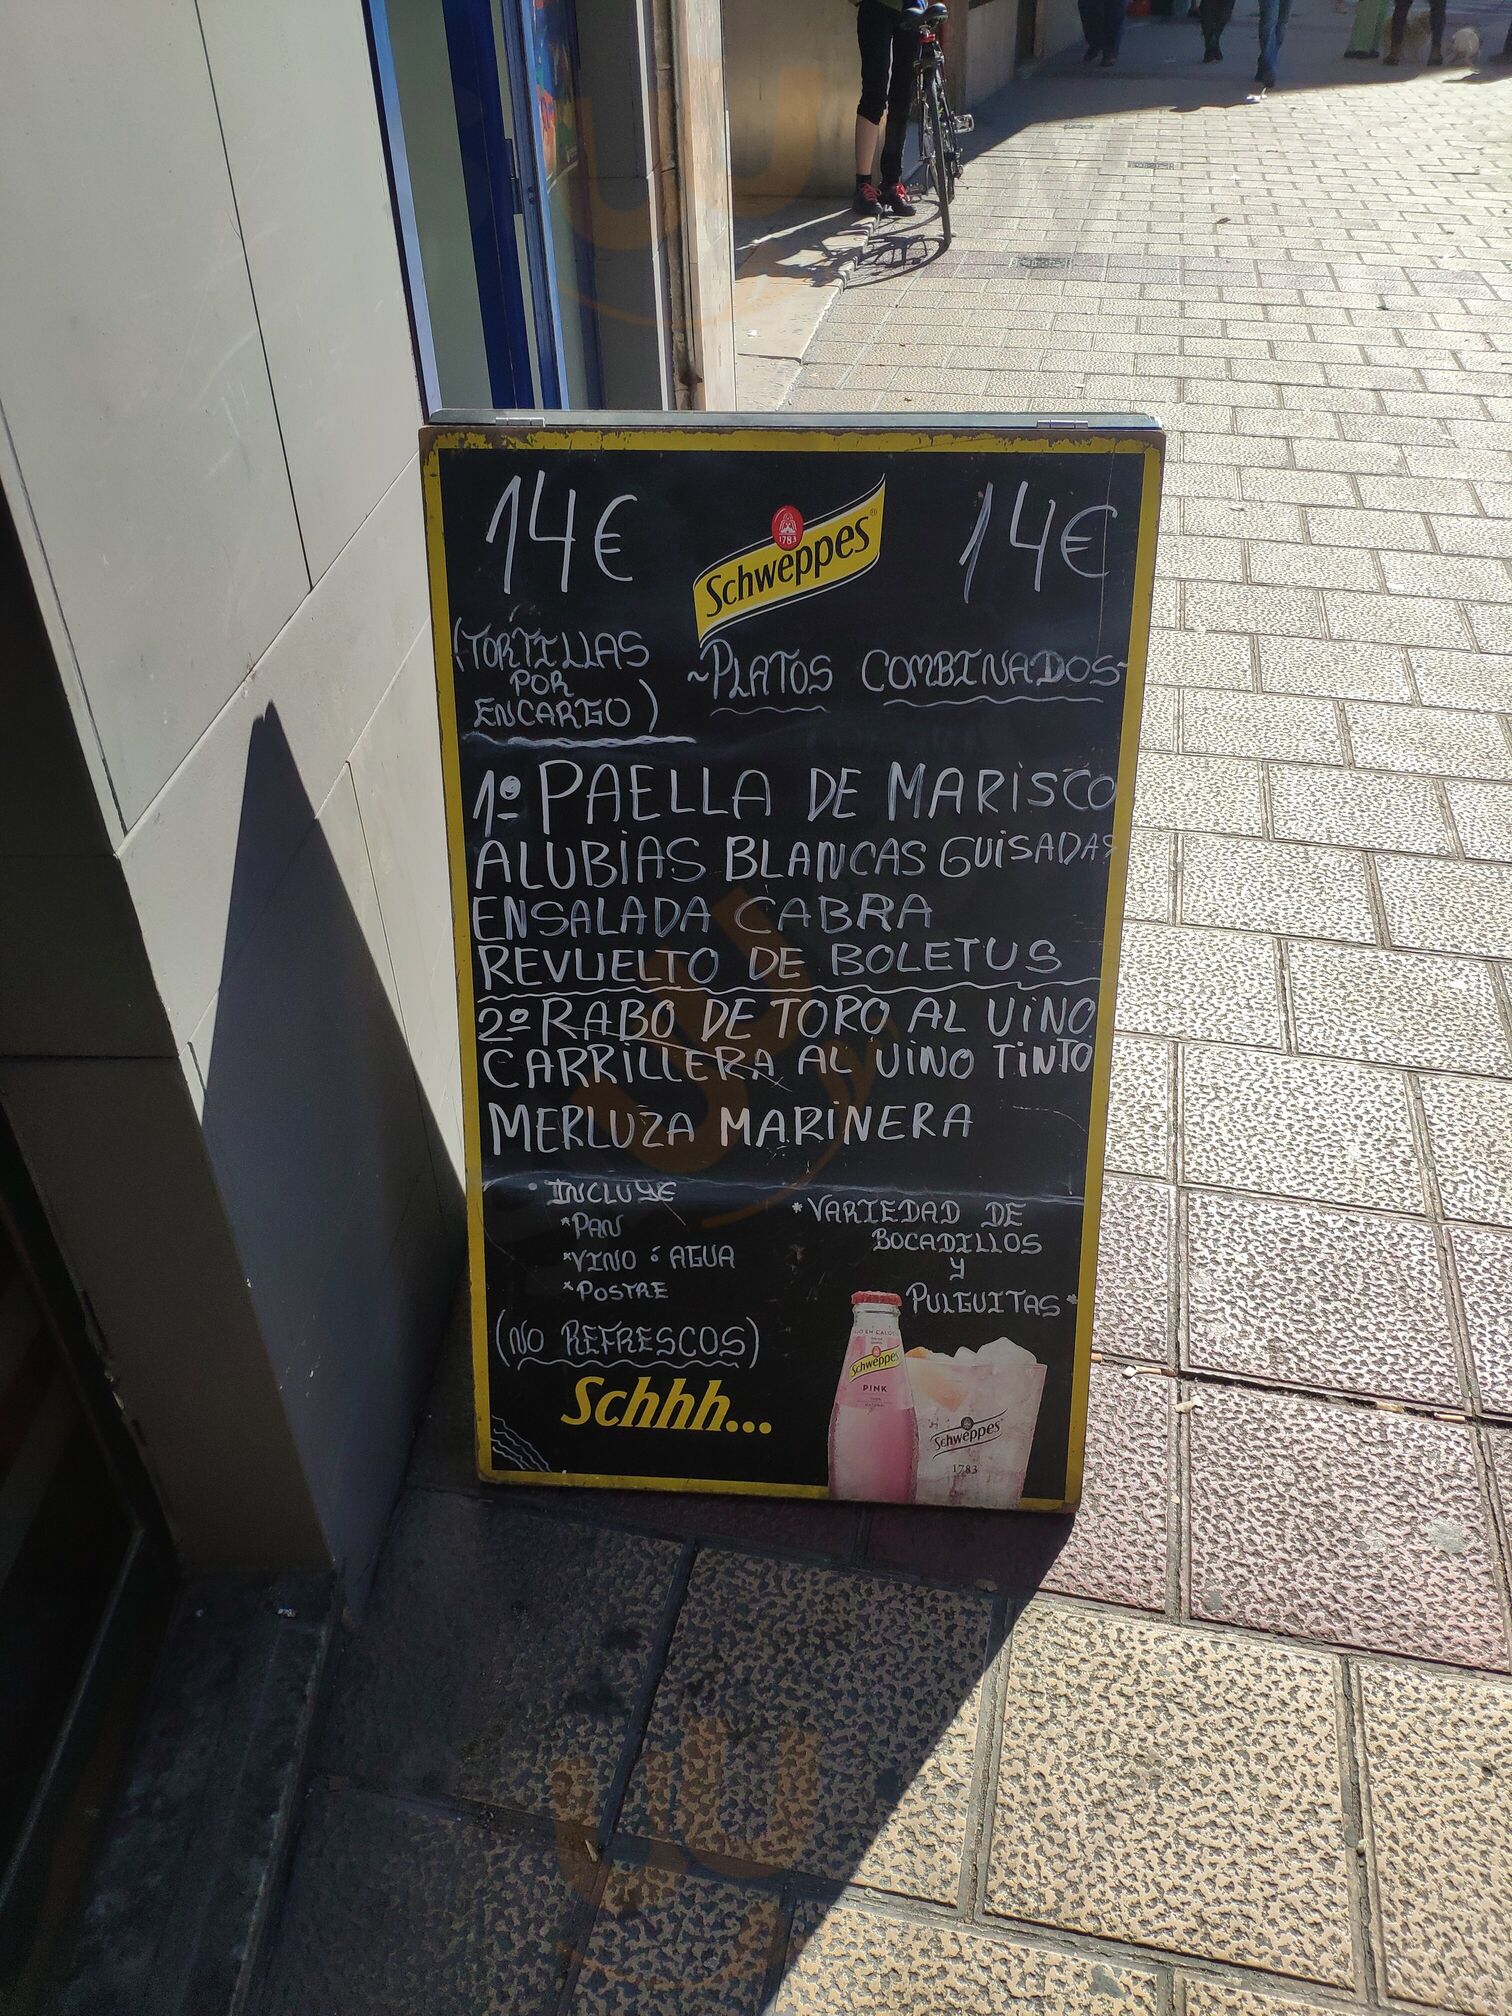 14€
Schweppes
1783
14€
(TORTILLAS
POR
ENCARGO)
~PLATOS COMBINADOS~
1º PAELLA DE MARISCO
ALUBIAS BLANCAS GUISADAS
ENSALADA CABRA
REVUELTO DE BOLETUS
2º RABO DE TORO AL VINO
CARRILLERA AL VINO TINTO
MERLUZA MARINERA
• INCLUYE
*PAN
*VINO ó AGUA
*POSTRE
(NO REFRESCOS)
*VARIEDAD DE
BOCADILLOS
Y
PULGUITAS*
Schhh...
Schweppes
PINK
Schweppes
1783